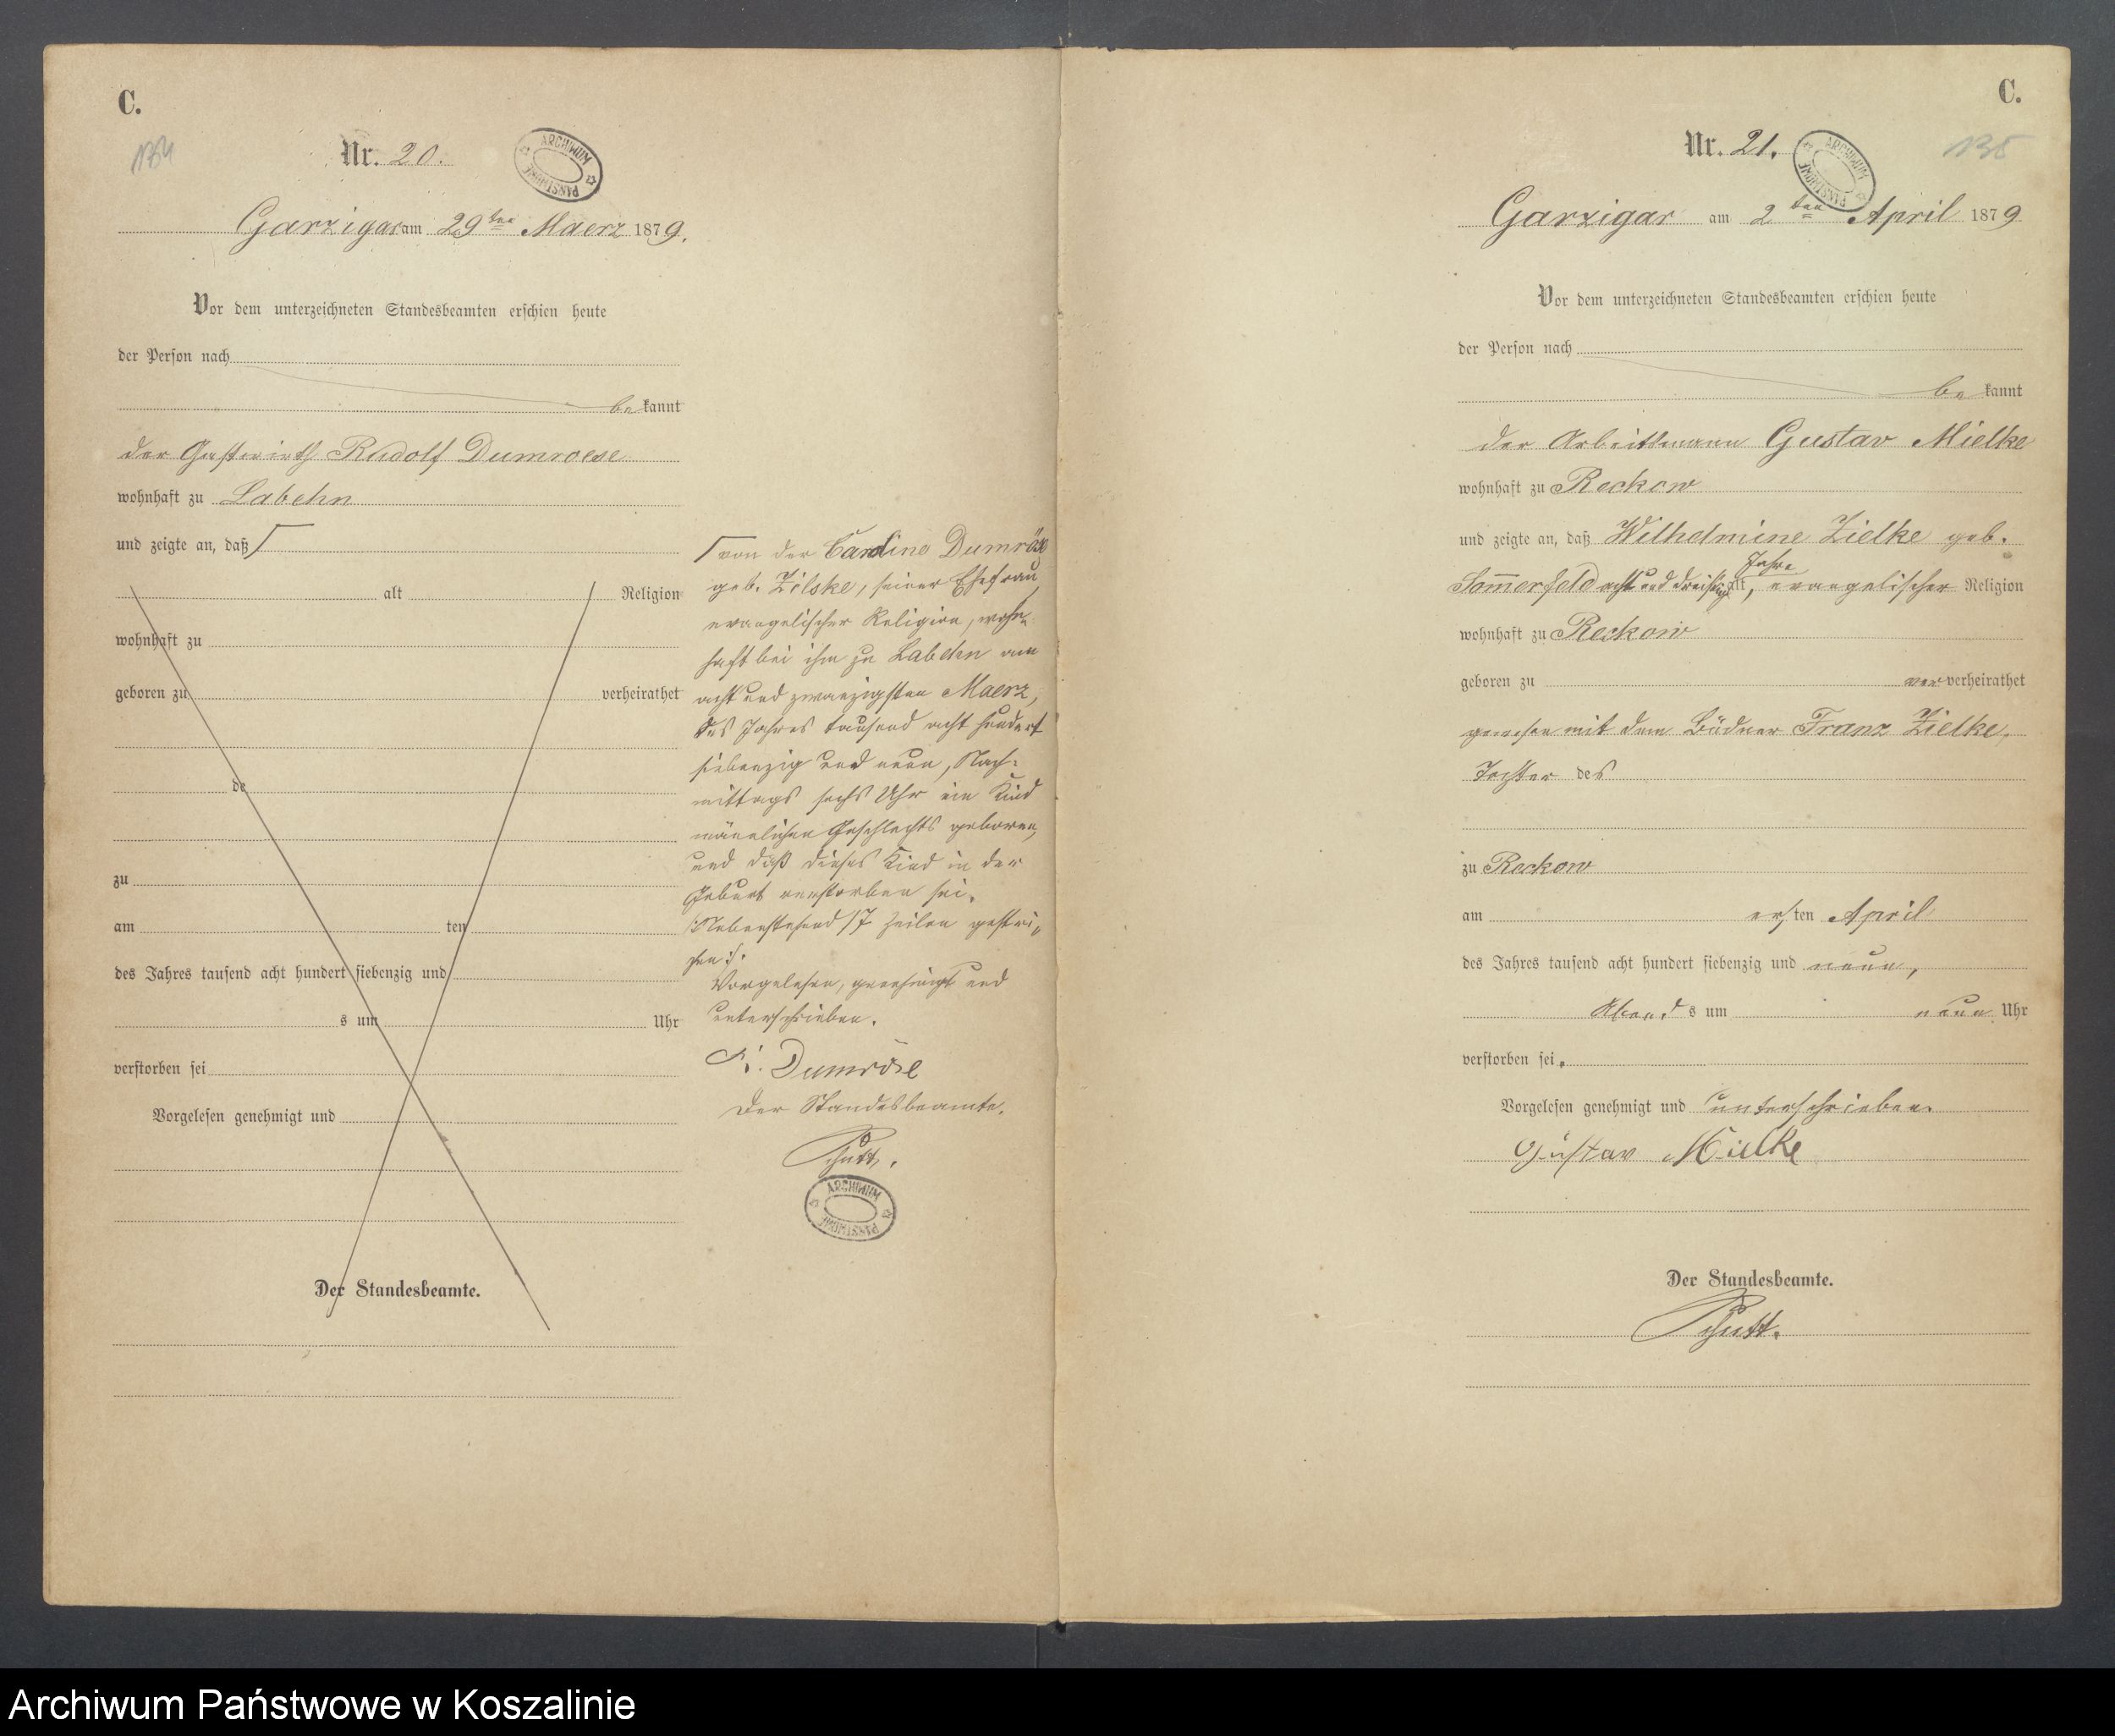 C.
134
Nr. 20.
ARCHIWUM PAŃSTWOWE
Garzigar am 29ten Maerz 1879.
Vor dem unterzeichneten Standesbeamten erschien heute
der Person nach
bekannt
der Gastwirth Rudolf Dumroese
wohnhaft zu Labehn
und zeigte an, daß
alt Religion
wohnhaft zu
geboren zu verheirathet
de
zu
am ten
des Jahres tausend acht hundert siebenzig und
s um Uhr
verstorben sei
Vorgelesen genehmigt und
Der Standesbeamte.
von der Caroline Dumröse
geb. Zilske, seiner Ehefrau,
evangelischer Religion, wohn-
haft bei ihm zu Labehn am
acht und zwanzigsten Maerz,
des Jahres tausend acht hundert
siebenzig und neun, Nach-
mittags sechs Uhr ein Kind
männlichen Geschlechts geboren,
und daß dieses Kind in der
Geburt verstorben sei.
/:Nebenstehend 17 Zeilen gestri-
chen:/.
Vorgelesen, genehmigt und
unterschrieben.
R. Dumröse
Der Standesbeamte.
Schutt.
ARCHIWUM PAŃSTWOWE
C.
135
Nr. 21.
ARCHIWUM PAŃSTWOWE
Garzigar am 2ten April 1879
Vor dem unterzeichneten Standesbeamten erschien heute
der Person nach
bekannt
der Arbeitsmann Gustav Mielke
wohnhaft zu Reckow
und zeigte an, daß Wilhelmine Zielke geb.
Jahre
Sommerfeld acht und dreißig alt, evangelischer Religion
wohnhaft zu Reckow
geboren zu war verheirathet
gewesen mit dem Büdner Franz Zielke,
Tochter des
zu Reckow
am ersten April
des Jahres tausend acht hundert siebenzig und neun,
Abends um neun Uhr
verstorben sei.
Vorgelesen genehmigt und unterschrieben.
Gustav Mielke
Der Standesbeamte.
Schutt.
Archiwum Państwowe w Koszalinie